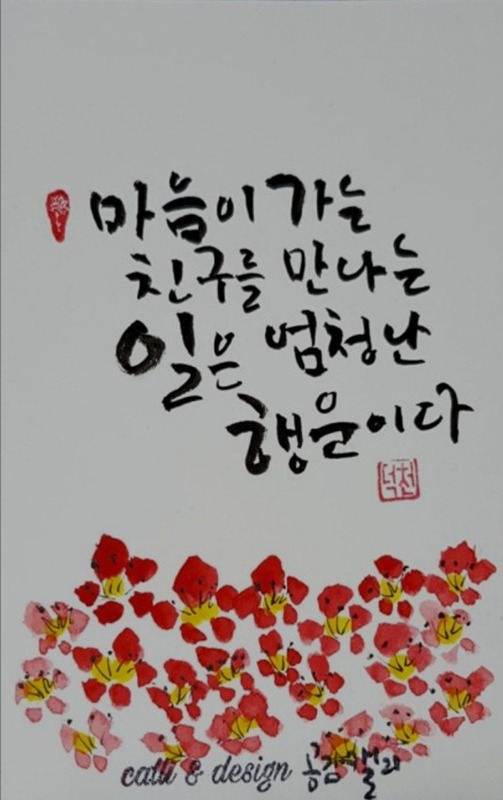 마음이 가는
친구를 만나는
일은 엄청난
행운이다
덕천
calli & design